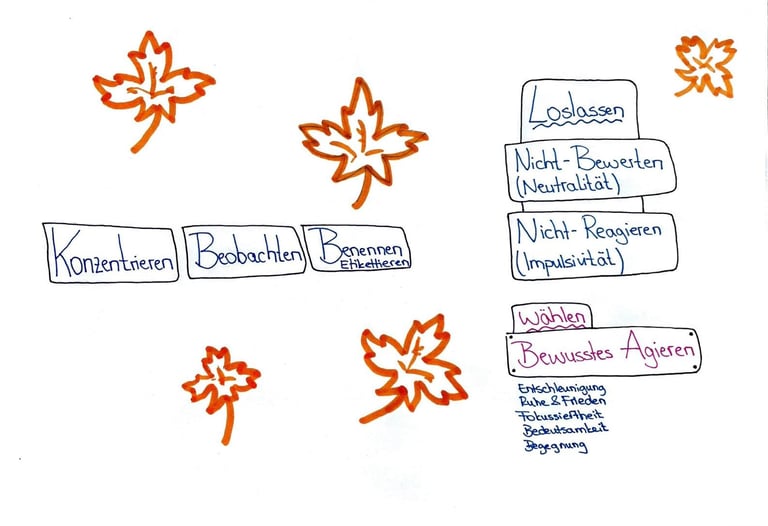 Konzentrieren
Beobachten
Benennen
Etikettieren
Loslassen
Nicht-Bewerten
(Neutralität)
Nicht-Reagieren
(Impulsivität)
Wählen
Bewusstes Agieren
Entschleunigung
Ruhe & Frieden
Fokussiertheit
Bedeutsamkeit
Begegnung